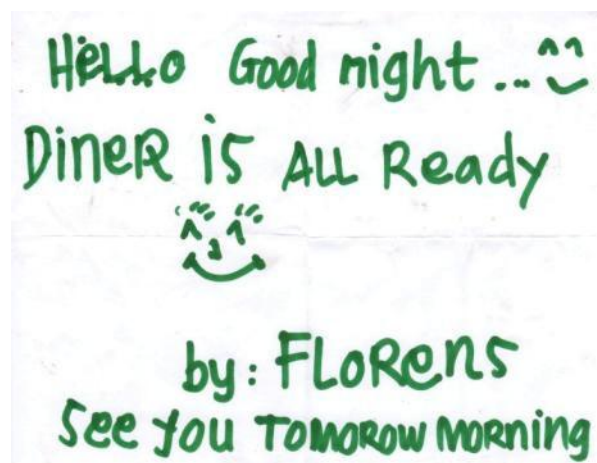 Hello Good night... ^^
DineR is ALL Ready
by: FLoRens
See you TomoRow MoRning